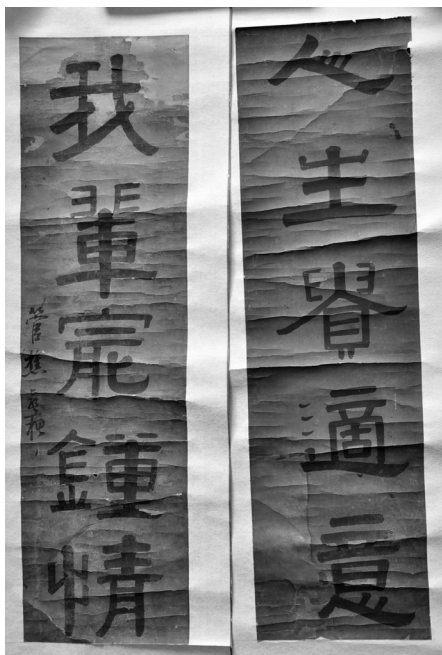 人生貴適意
我輩鍾情